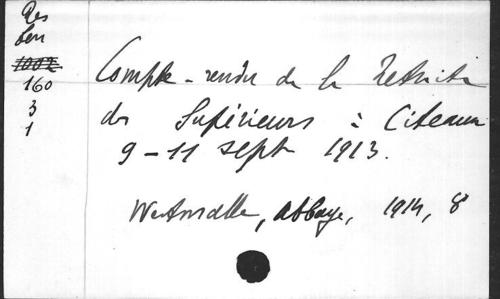 Res
Ben
1002
160
3
1
Compte-rendu de la Retraite
des Supérieurs à Citeaux
9-11 sept 1913.
Westmalle, Abbaye, 1914, 8°